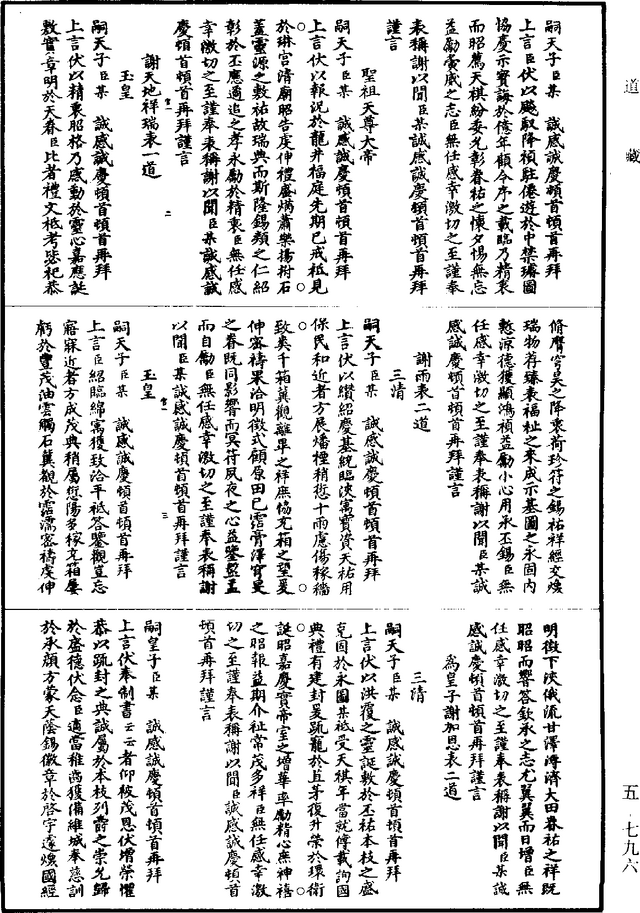 道藏
嗣天子臣某　誠感誠慶頓首頓首再拜
上言臣伏以飈馭降禎駐僊遊於中禁瓊圖
協慶示寶誨於億年顧令序之載臨乃精衷
而昭薦天棋紛委允彰眷祐之懷夕惕無忘
益勵寅威之志臣無任感幸激切之至謹奉
表稱謝以聞臣某誠感誠慶頓首頓首再拜
謹言
聖祖天尊大帝
嗣天子臣某　誠感誠慶頓首頓首再拜
上言伏以報況於龍井福庭先期已戒祗見
於琳宮清廟昭告虔伸禮盛焫蕭樂揚拊石
蓋靈源之敷祐故瑞典而斯隆錫類之仁紹
彰於丕應遹追之孝永勵於精衷臣無任感
幸激切之至謹奉表稱謝以聞臣某誠感誠
慶頓首頓首再拜謹言
謝天地祥瑞表一道
玉皇
嗣天子臣某　誠感誠慶頓首頓首再拜
上言伏以精衷昭格乃感動於靈心嘉應誕
敷實章明於天眷臣比者禮文祗考毖祀恭
脩膺穹昊之降衷荷珍符之錫祐祥經交煥
瑞物荐臻表福祉之來成示基圖之永固内
慙涼德獲顯鴻禎益勵小心用承丕錫臣無
任感幸激切之至謹奉表稱謝以聞臣某誠
感誠慶頓首頓首再拜謹言
謝雨表二道
三清
嗣天子臣某　誠感誠慶頓首頓首再拜
上言伏以纘紹慶基統臨淡寓寶資天祐用
保民和近者方展燔禋稍愆十雨慮傷稼穡
致奚千箱冀觀離畢之祥庶協充箱之望爰
伸密禱果洽明徵式顧原田已霑膏澤穹旻
之眷既同影響而冥符夙夜之心益鑒盤盂
而自勵臣無任感幸激切之至謹奉表稱謝
以聞臣某誠感誠慶頓首頓首再拜謹言
玉皇
嗣天子臣某　誠感誠慶頓首頓首再拜
上言臣紹臨綿寓獲致洽平祗答鑒觀豈忘
寤寐近者方成茂典稍屬愆陽多稼充箱屢
虧於豐茂油雲觸石冀觀於霑濡密禱虔伸
明徵下浹俄流甘澤溥濟大田眷祐之祥既
昭昭而響答欽承之志尤翼翼而日增臣無
任感幸激切之至謹奉表稱謝以聞臣某誠
感誠慶頓首頓首再拜謹言
為皇子謝加恩表二道
三清
嗣天子臣某　誠感誠慶頓首頓首再拜
上言伏以洪覆之靈誕敷於丕祐本枝之盛
克固於永圖某祗受天祺年當就傅載詢國
典禮有建封爰疏寵於苴茅復升榮於環衛
誕昭嘉慶實帝室之增華率勵精心無神禧
之昭報益期介祉常茂多祥臣無任感幸激
切之至謹奉表稱謝以聞臣誠感誠慶頓首
頓首再拜謹言
嗣皇子臣某　誠感誠慶頓首頓首再拜
上言伏奉制書云云者仰被茂恩伏增榮懼
恭以疏封之典誠屬於本枝列爵之崇允歸
於盛德伏念臣適當稚齒獲備維城奉慈訓
於承顏方蒙天蔭錫徽章於啓宇遽煥國經
五·七九六